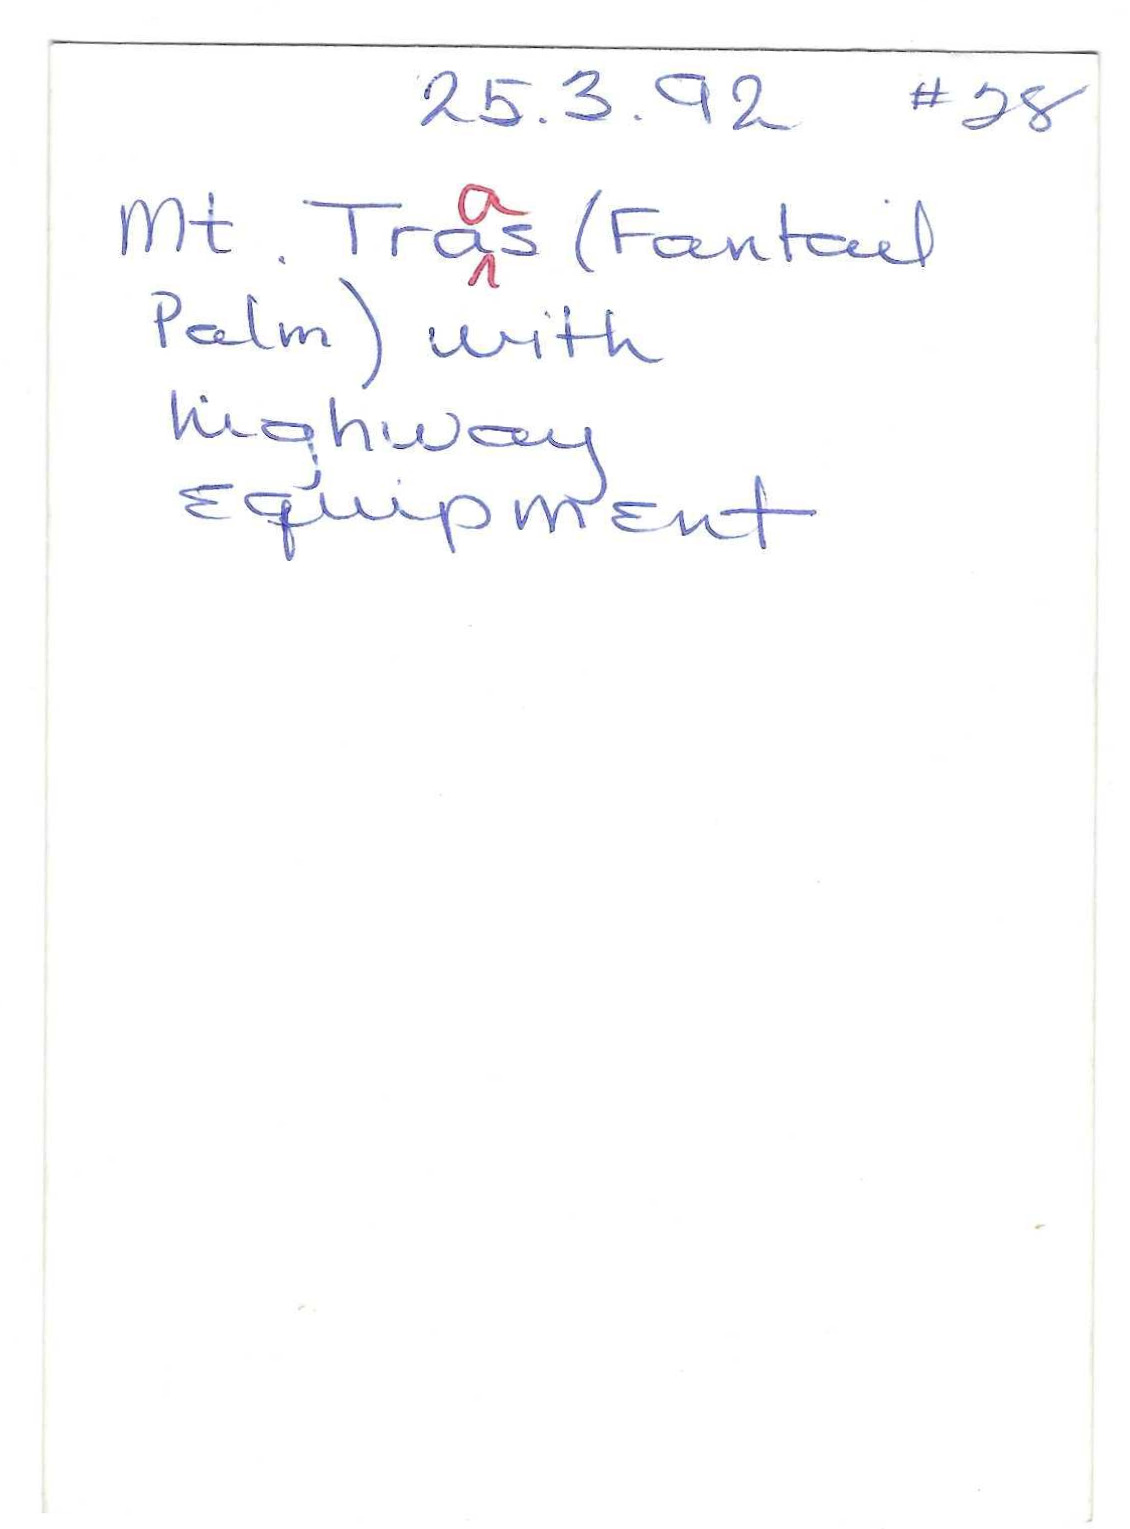 25.3.92 #28
Mt. Traas (Fantail
Palm) with
highway
Equipment